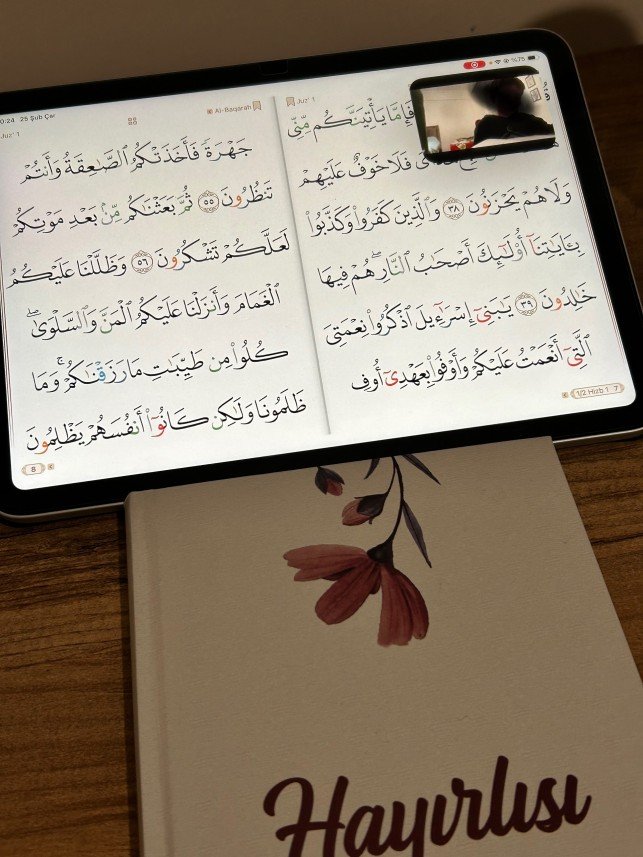 0:24 25 Şub Çar
%75
Juz' 1
فَإِمَّا يَأْتِيَنَّكُم مِّنِّى
فَلَا خَوْفٌ عَلَيْهِمْ
وَلَا هُمْ يَحْزَنُونَ ٣٨ وَٱلَّذِينَ كَفَرُوا۟ وَكَذَّبُوا۟
بِـَٔايَـٰتِنَآ أُو۟لَـٰٓئِكَ أَصْحَـٰبُ ٱلنَّارِ ۖ هُمْ فِيهَا
خَـٰلِدُونَ ٣٩ يَـٰبَنِىٓ إِسْرَٰٓءِيلَ ٱذْكُرُوا۟ نِعْمَتِىَ
ٱلَّتِىٓ أَنْعَمْتُ عَلَيْكُمْ وَأَوْفُوا۟ بِعَهْدِىٓ أُوفِ
1/2 Hizb 1 7
Juz' 1 Al-Baqarah
جَهْرَةً فَأَخَذَتْكُمُ ٱلصَّـٰعِقَةُ وَأَنتُمْ
تَنظُرُونَ ٥٥ ثُمَّ بَعَثْنَـٰكُم مِّنۢ بَعْدِ مَوْتِكُمْ
لَعَلَّكُمْ تَشْكُرُونَ ٥٦ وَظَلَّلْنَا عَلَيْكُمُ
ٱلْغَمَامَ وَأَنزَلْنَا عَلَيْكُمُ ٱلْمَنَّ وَٱلسَّلْوَىٰ ۖ
كُلُوا۟ مِن طَيِّبَـٰتِ مَا رَزَقْنَـٰكُمْ ۚ وَمَا
ظَلَمُونَا وَلَـٰكِن كَانُوٓا۟ أَنفُسَهُمْ يَظْلِمُونَ
8
Hayırlısı